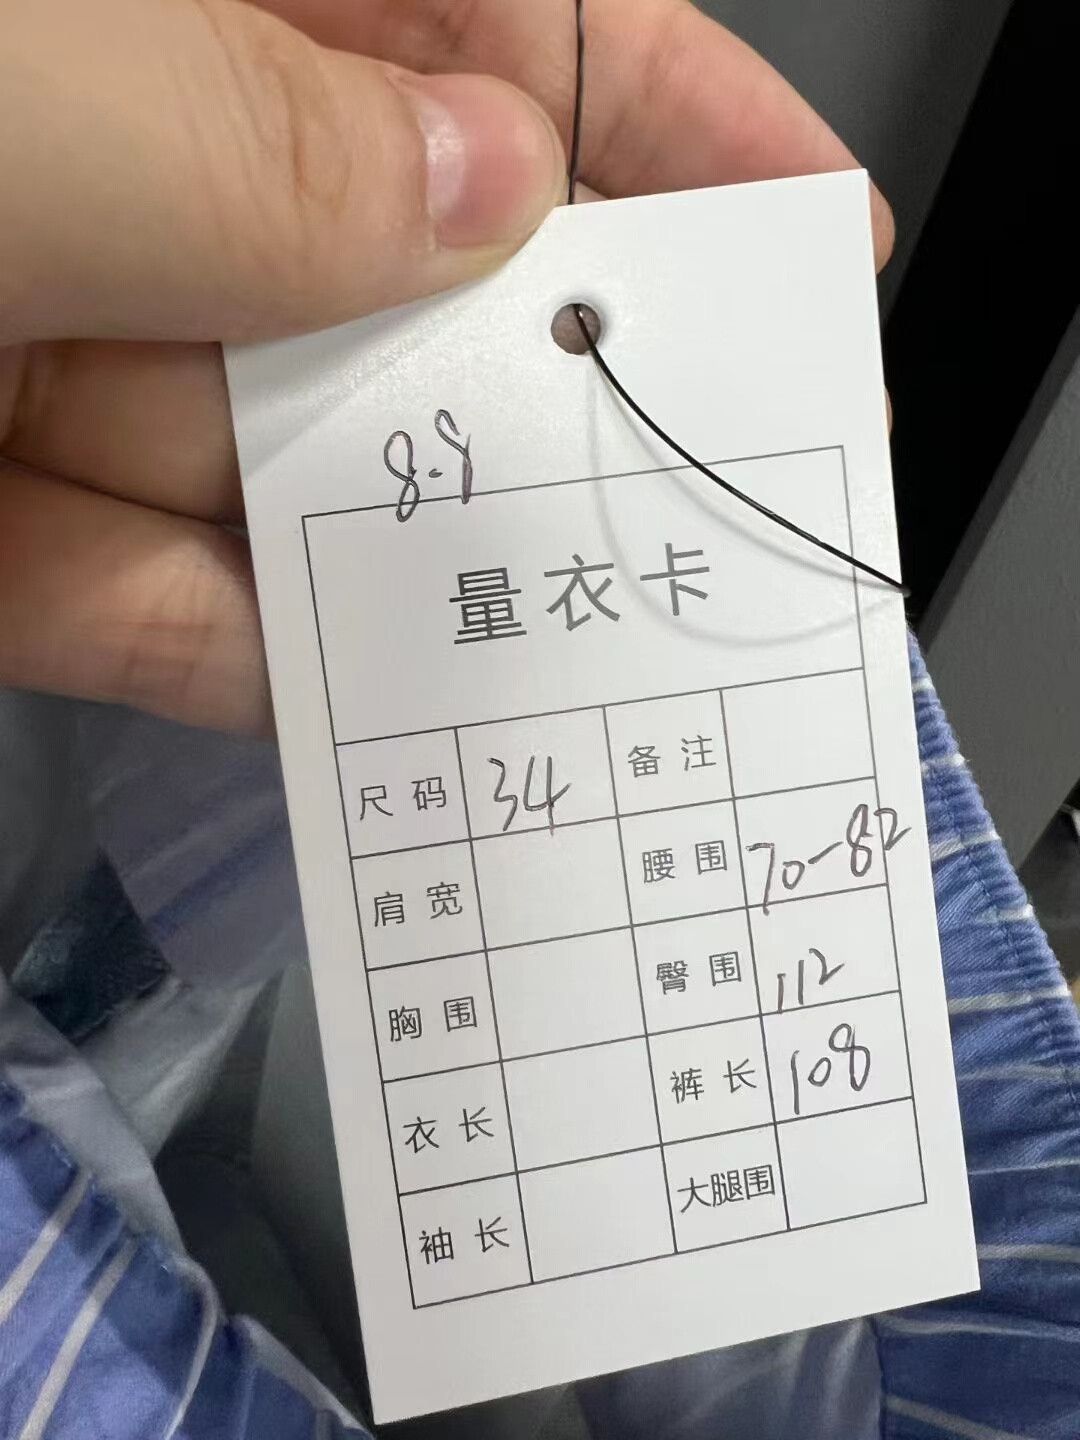 8.8
量衣卡
尺码 34 备注
肩宽 腰围 70-82
胸围 臀围 112
衣长 裤长 108
袖长 大腿围